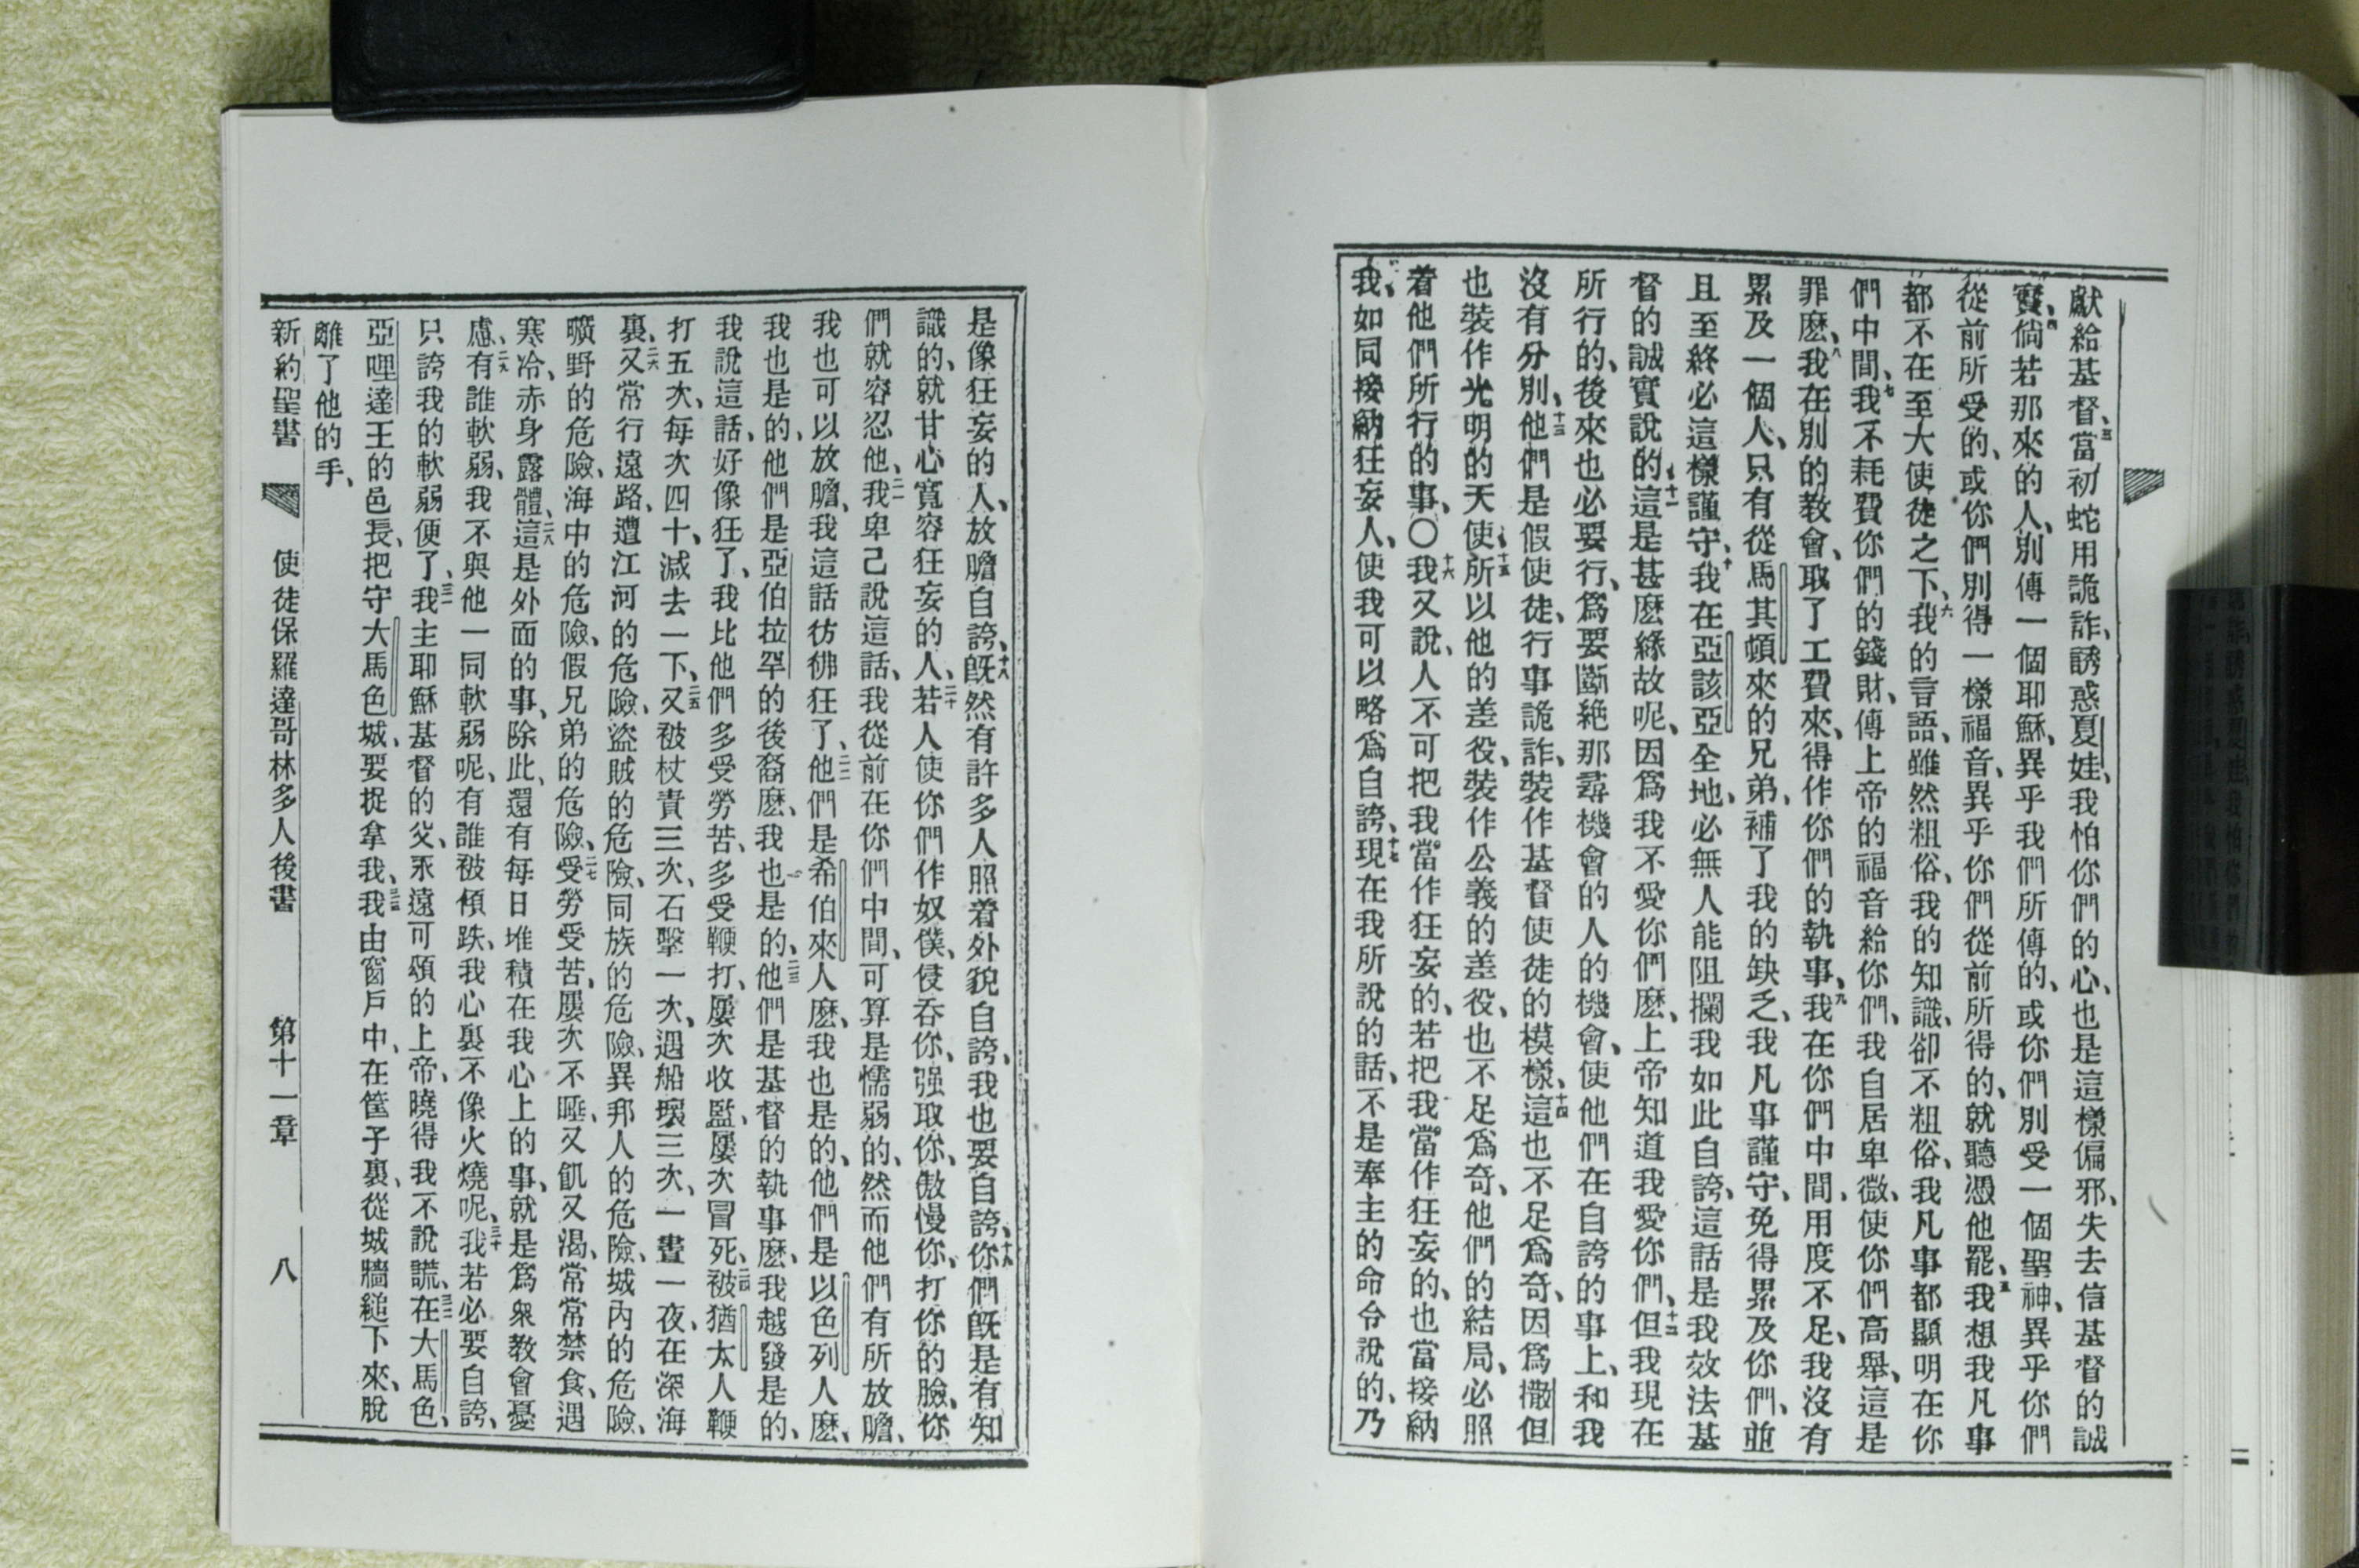 獻給基督、三當初蛇用詭詐、誘惑夏娃、我怕你們的心、也是這樣偏邪、失去信基督的誠
實、四倘若那來的人、別傳一個耶穌、異乎我們所傳的、或你們別受一個聖神、異乎你們
從前所受的、或你們別得一樣福音、異乎你們從前所得的、就聽憑他罷、五我想我凡事
都不在至大使徒之下、六我的言語、雖然粗俗、我的知識、卻不粗俗、我凡事都顯明在你
們中間、七我不耗費你們的錢財、傳上帝的福音給你們、我自居卑微、使你們高舉、這是
罪麽、八我在別的教會、取了工費來、得作你們的執事、九我在你們中間、用度不足、我沒有
累及一個人、只有從馬其頓來的兄弟、補了我的缺乏、我凡事謹守、免得累及你們、並
且至終必這樣謹守、十我在亞該亞全地、必無人能阻攔我如此自誇、這話是我效法基
督的誠實說的、十一這是甚麽緣故呢、因爲我不愛你們麽、上帝知道我愛你們、十二但我現在
所行的、後來也必要行、爲要斷絶那尋機會的人的機會、使他們在自誇的事上、和我
沒有分別、十三他們是假使徒、行事詭詐、裝作基督使徒的模樣、十四這也不足爲奇、因爲撒但
也裝作光明的天使、十五所以他的差役、裝作公義的差役、也不足爲奇、他們的結局、必照
着他們所行的事、〇十六我又說、人不可把我當作狂妄的、若把我當作狂妄的、也當接納
我、如同接納狂妄人、使我可以略爲自誇、十七現在我所說的話、不是奉主的命令說的、乃
是像狂妄的人、放瞻自誇、十八旣然有許多人照着外貌自誇、我也要自誇、十九你們旣是有知
識的、就甘心寬容狂妄的人、二十若人使你們作奴僕、侵吞你、强取你、傲慢你、打你的臉、你
們就容忍他、二一我卑己說這話、我從前在你們中間、可算是懦弱的、然而他們有所放瞻、
我也可以放膽、我這話彷彿狂了、二二他們是希伯來人麽、我也是的、他們是以色列人麽、
我也是的、他們是亞伯拉罕的後裔麽、我也是的、二三他們是基督的執事麽、我越發是的、
我說這話、好像狂了、我比他們多受勞苦、多受鞭打、屢次收監、屢次冒死、二四被猶太人鞭
打五次、每次四十、減去一下、二五又被杖責三次、石擊一次、遇船壞三次、一晝一夜、在深海
裏、二六又常行遠路、遭江河的危險、盜賊的危險、同族的危險、異邦人的危險、城內的危險、
曠野的危險、海中的危險、假兄弟的危險、二七受勞受苦、屢次不睡、又飢又渴、常常禁食、遇
寒冷、赤身露體、二八這是外面的事、除此、還有每日堆積在我心上的事、就是爲衆教會憂
慮、二九有誰軟弱、我不與他一同軟弱呢、有誰被傾跌、我心裏不像火燒呢、三十我若必要自誇、
只誇我的軟弱便了、三一我主耶穌基督的父、永遠可頌的上帝、曉得我不說謊、三二在大馬色、
亞哩達王的邑長、把守大馬色城、要捉拿我、三三我由窗戶中、在筐子裏、從城牆縋下來、脫
離了他的手、
新約聖書 使徒保羅達哥林多人後書 第十一章 八